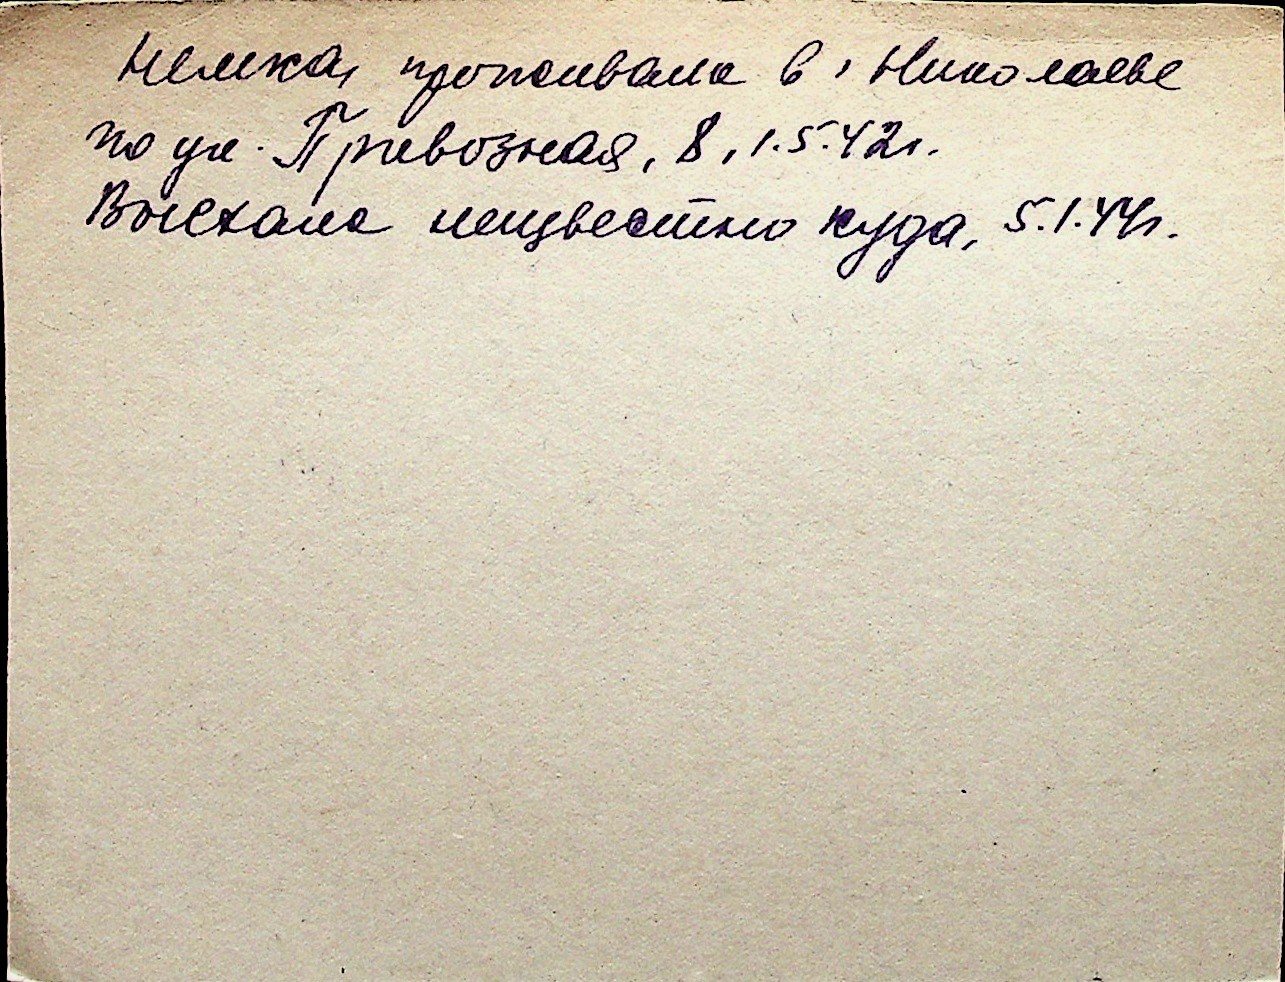 Немка, проживала в г. Николаеве
по ул. Привозная, 8, 1.5.42г.
Выехала неизвестно куда, 5.1.44г.